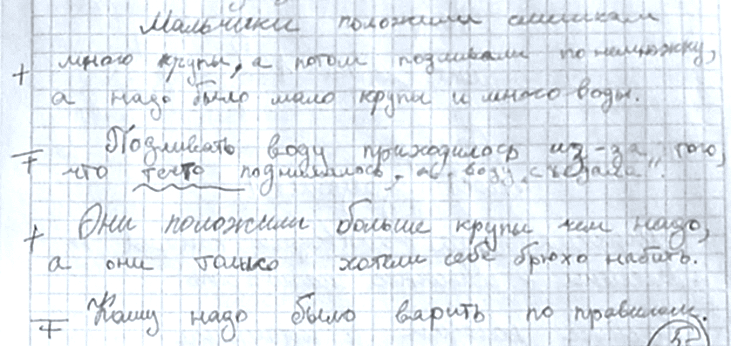 Мальчики положили слишкам
+ много крупы, а потом подливали по немножку,
а надо было мало крупы и много воды.
Подливать воду приходилось из-за того,
что тесто поднималось, а воду „съедала”.
+ Они положили больше крупы чем надо,
а они только хотели себе брюхо набить.
Кашу надо было варить по правилам.